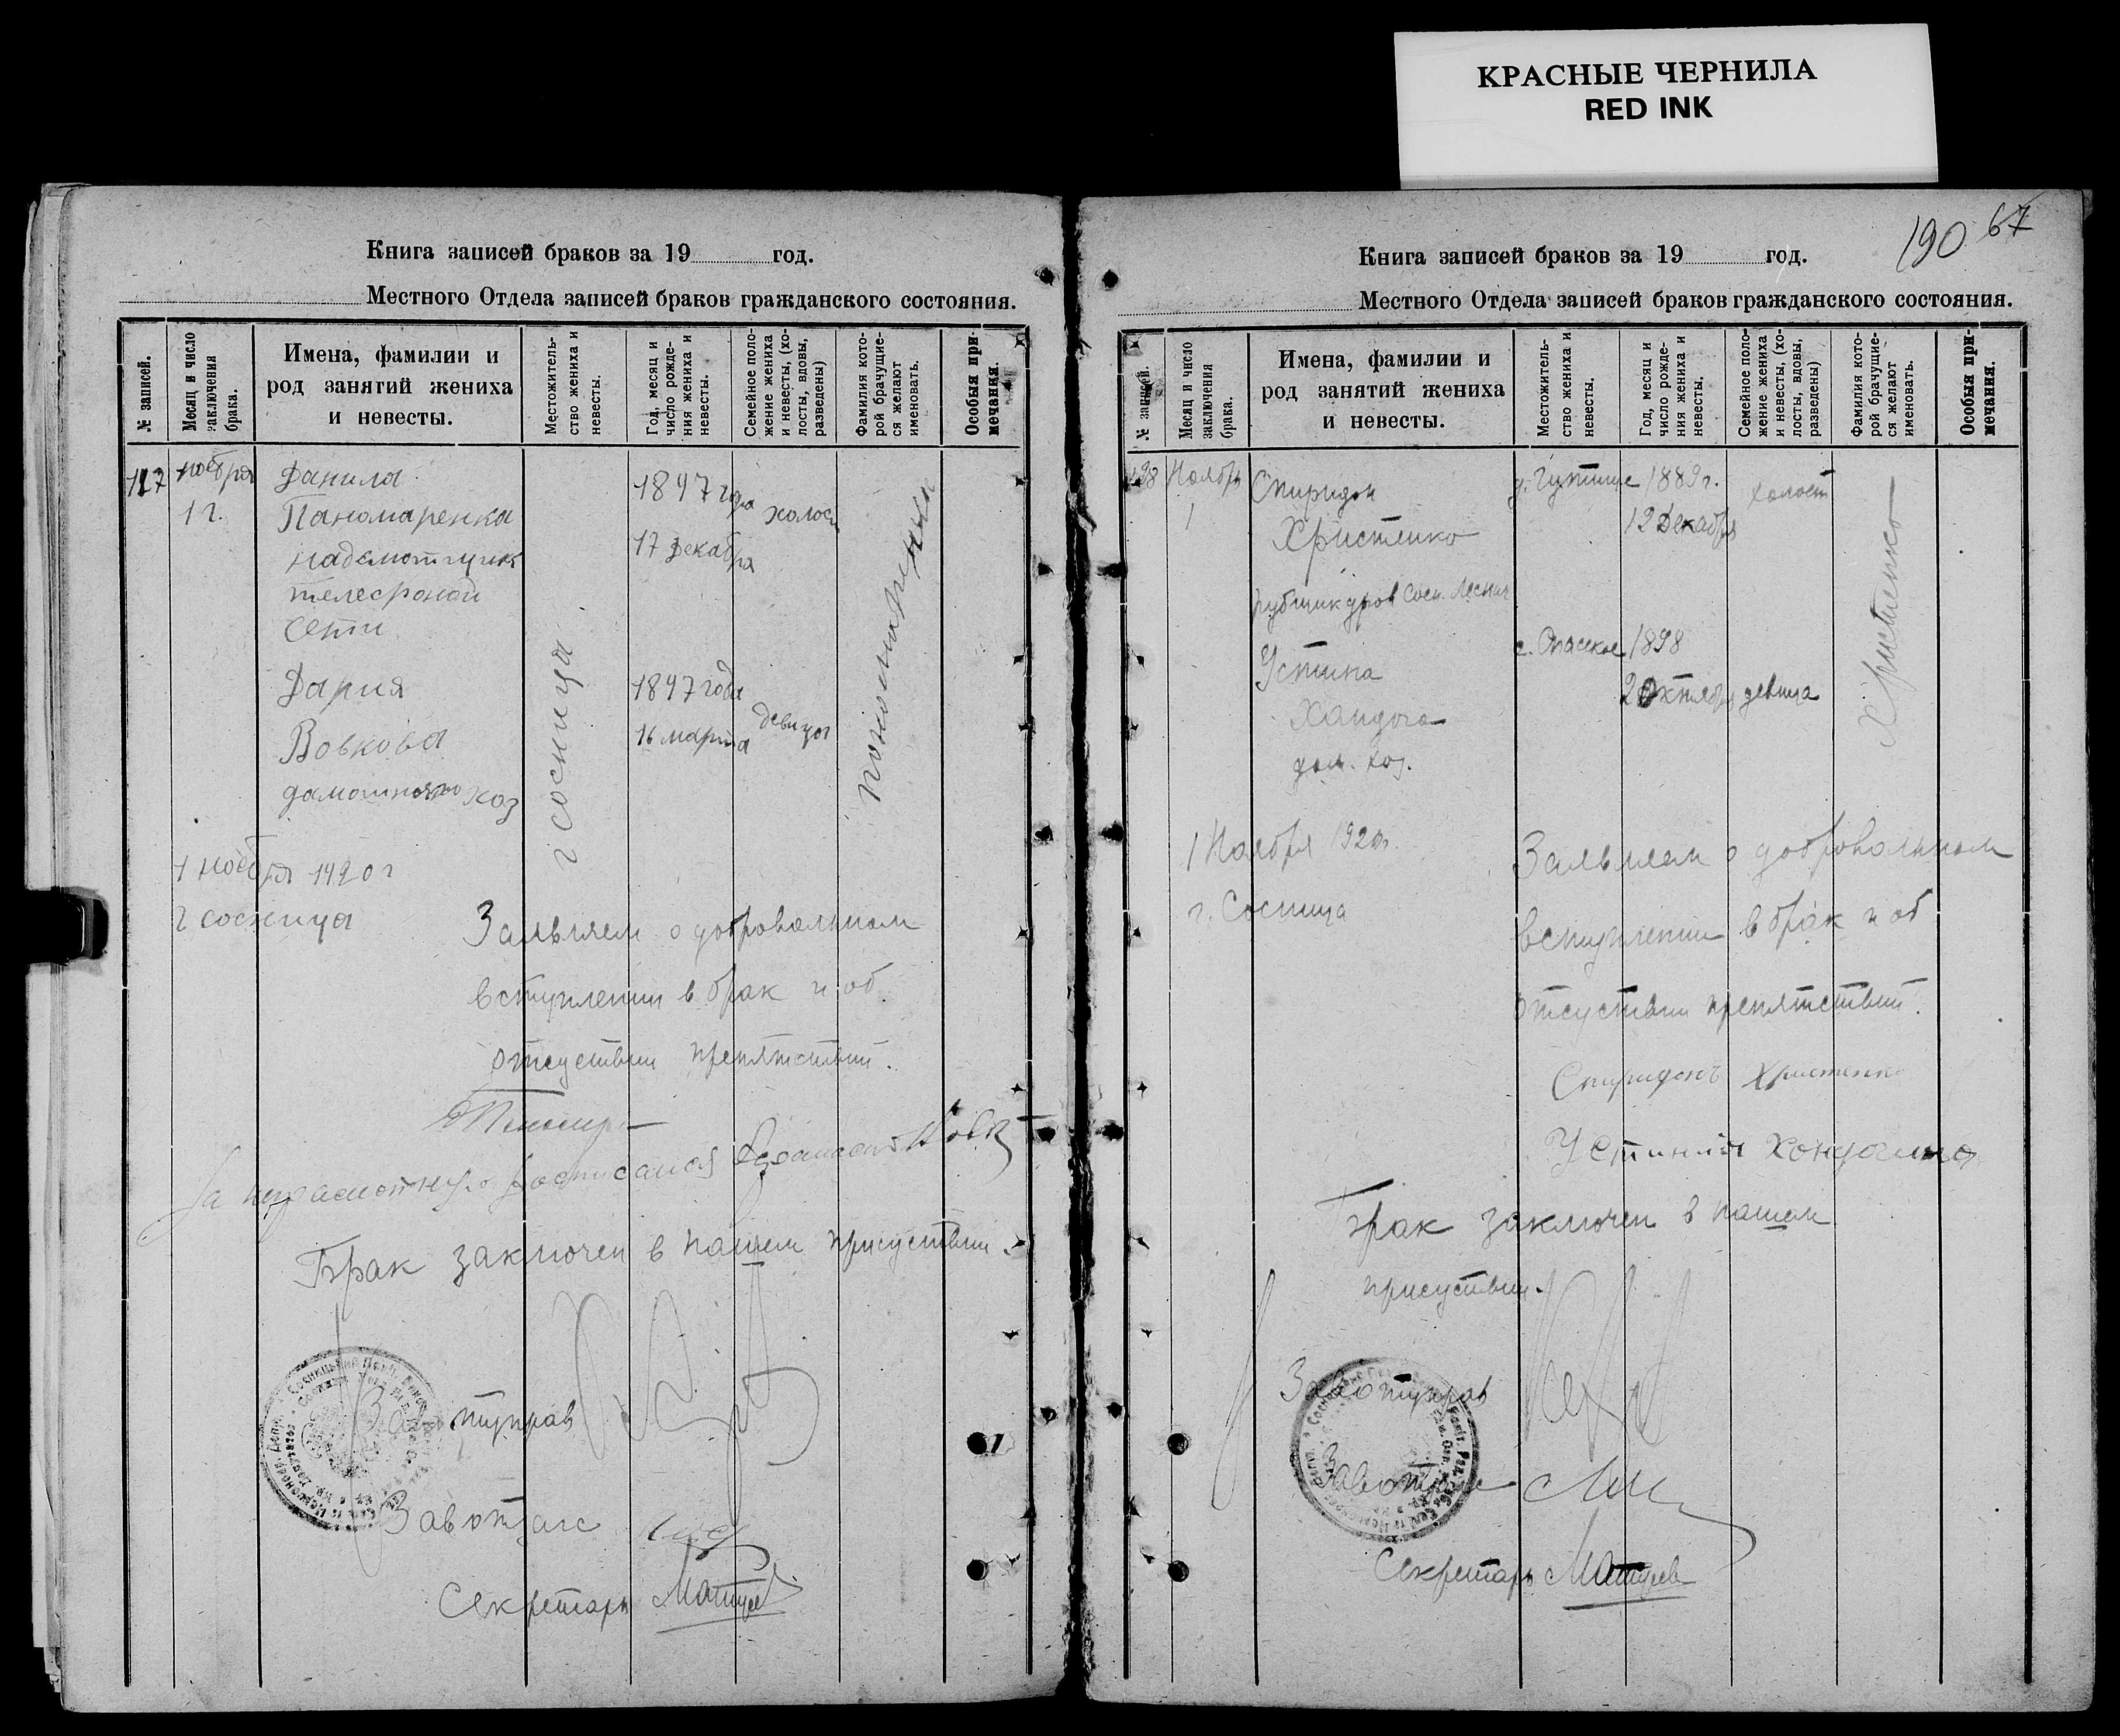 КРАСНЫЕ ЧЕРНИЛА
RED INK
Книга записей браков за 19 год.
Местного Отдела записей браков гражданского состояния.
№ записей.
Месяц и число заключения брака.
Имена, фамилии и
род занятий жениха
и невесты.
Местожитель-
ство жениха и
невесты.
Год, месяц и
число рожде-
ния жениха и
невесты.
Семейное поло-
жение жениха
и невесты, (хо-
лосты, вдовы,
разведены)
Фамилия кото-
рой брачущие-
ся желают
именовать.
Особыя при-
мечания.
ноября
1 г.
Данила
Паномаренка
надсмотщик
телефоной
сети
Дария
Вовкова
г Сосница
1897 года
17 Декабря
холост
1897 года
16 марта
девица
1 ноября 1920 г
г сосница
Заявляем о добровольном
вступлении в брак и об
отсуствии препятствий.
За неграмотную росписался
Брак заключен в нашем присуствии.
Завотуправ
Завотзагс
Секретарь
190 67
Книга записей браков за 19 год.
Местного Отдела записей браков гражданского состояния.
№ записей.
Месяц и число
заключения
брака.
Имена, фамилии и
род занятий жениха
и невесты.
Местожитель-
ство жениха и
невесты.
Год, месяц и
число рожде-
ния жениха и
невесты.
Семейное поло-
жение жениха
и невесты, (хо-
лосты, вдовы,
разведены)
Фамилия кото-
рой брачущие-
ся желают
именовать.
Особыя при-
мечания.
Ноябрь
1
Спиридон
Христенко
рубщик дров Сосн. Леснич
д. Гутище
1889 г.
12 Декабря
холост
Христенко
Устина
Хандога
дом. хоз.
с. Спаское
1898
2 Октября
девица
1 Ноября 1920 г.
г. Сосница
Заявляем о добровольном
вступлении в брак и об
отсуствии препятствий.
Спиридонъ Христенко
Устиния
Брак заключен в нашем
присуствии.
Завотуправ
Завотзагс
Секретарь